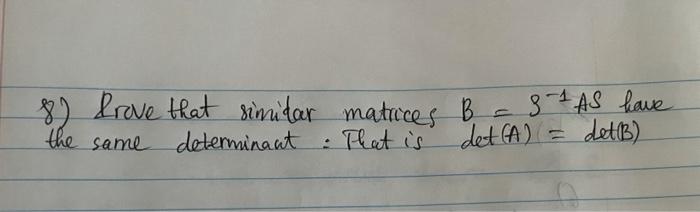 8) Prove that similar matrices B = S⁻¹AS have
the same determinant : That is det(A) = det(B)